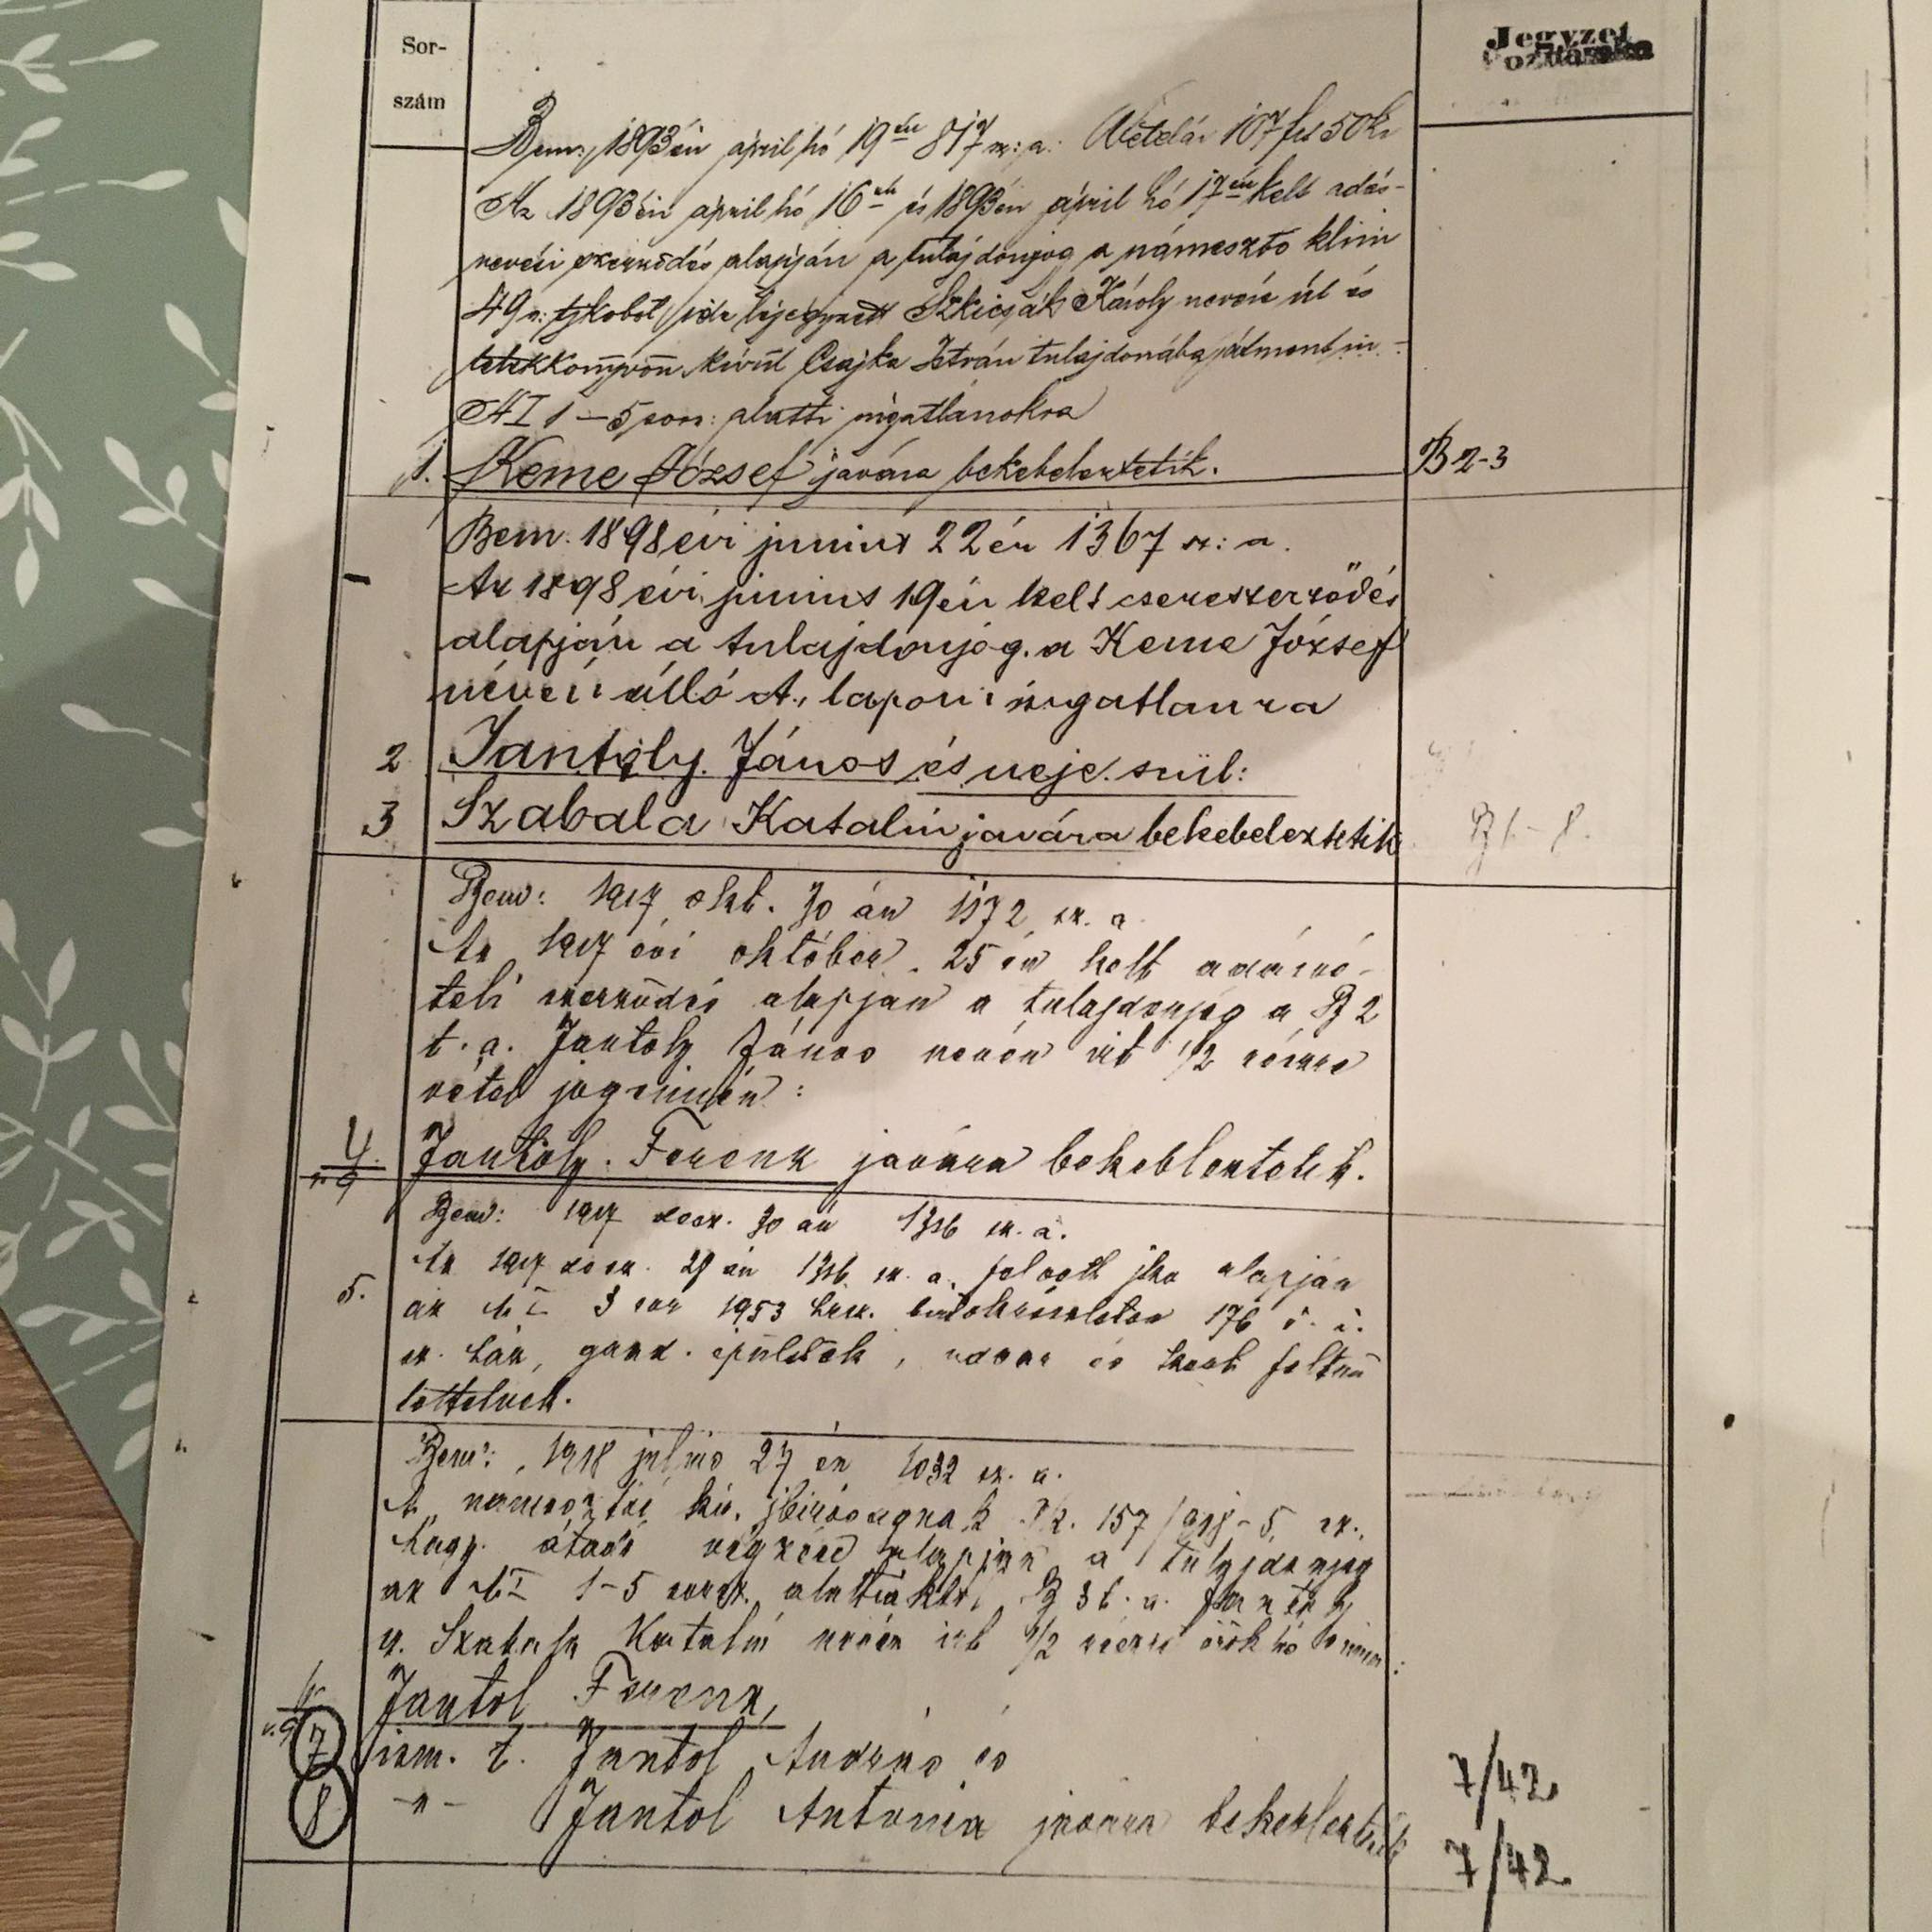 Sor-
szám
Jegyzet
Poznámka
Bem: 1893 én április hó 19én 817 sz: a: Vételár 107 frt 50 kr
Az 1893 én április hó 16án és 1893 én április hó 17én kelt adás-
vevési szerződés alapján a tulajdonjog a námesztó klini
49 sz: tjkvből ide bejegyzett Szkicsák Károly nevén úl és
telekkönyvön kívül Csajka István tulajdonába átment in-
A I 1–5 sorsz: alatti ingatlanokra
1. Keme József javára bekebeleztetik. B 2-3
Bem. 1898 évi junius 22 én 1367 sz: a.
Az 1898 évi junius 19 én kelt csereszerződés
alapján a tulajdonjog a Keme József
nevén álló A. laponi ingatlanra
2 Jantoly János és neje szül:
3 Szabala Katalin javára bekebeleztetik B 1-8.
Bem: 1917 okt. 30 án 1172 sz. a.
Az 1917 évi október 25 én kelt adásvé-
teli szerződés alapján a tulajdonjog a B 2
t. a. Jantoly János nevén irt 1/2 részre
vétel jogcimén:
4. Jantoly Ferenz javára bekebleztetik.
Bem: 1917 decz. 30 án 1316 sz. a.
Az 1917 decz. 29 én 1316 sz. a. felvett jkv alapján
5. az A I 3 sor 1953 hrsz. birtokrészleten 176 ö. i.
sz. ház, gazd. épületek, udvar és kert feltün-
tettetnek.
Bem: 1918 julius 27 én 1032 sz. a.
A námesztói kir. jbiróságnak Pk. 157/918-5 sz.
hagy. átadó végzése alapján a tulajdonjog
az A I 1-5 sorsz. alattiakból B 3 t. a. Jantoly
sz. Szabala Katalin nevén irt 1/2 részre öröklés cimén:
Jantol Ferenz,
7 kisk. Jantol András és 7/42
8 -"- Jantol Antonia javára bekebleztetik 7/42